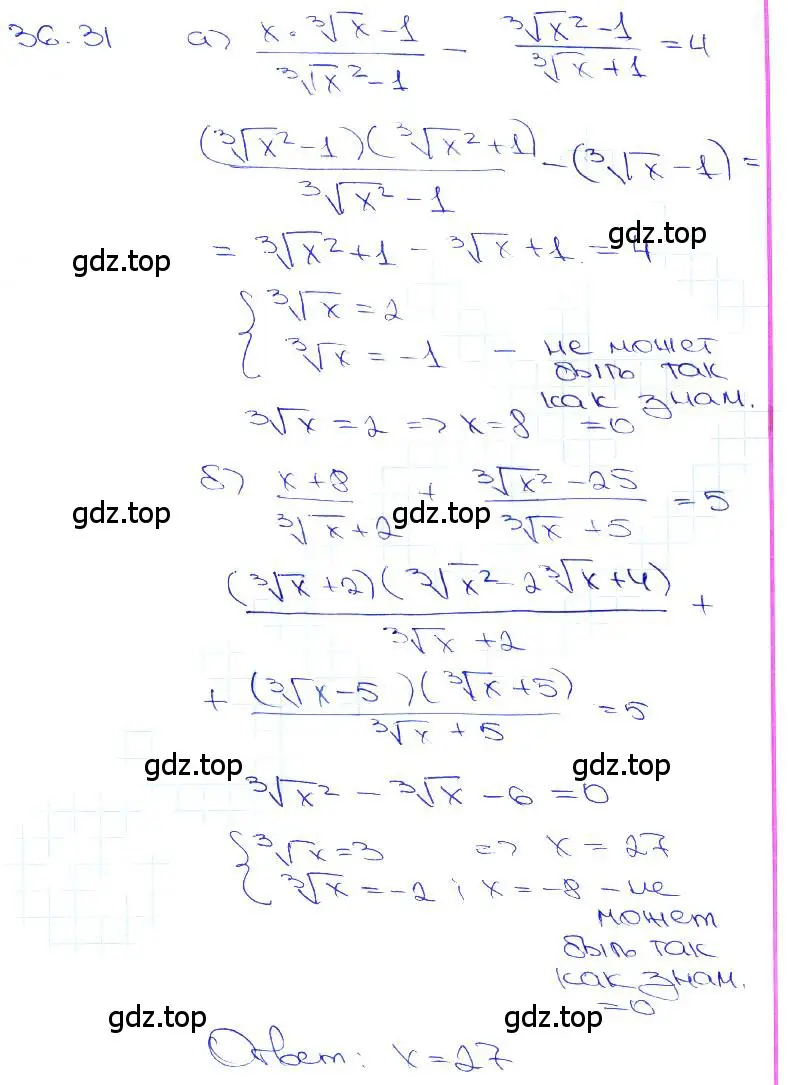 36.31 а) (x·∛x − 1)/(∛x² − 1) − (∛x² − 1)/(∛x + 1) = 4
((∛x² − 1)(∛x² + 1))/(∛x² − 1) − (∛x − 1) =
= ∛x² + 1 − ∛x + 1 = 4
gdz.top gdz.top
{ ∛x = 2
∛x = −1 − не может
быть так
как знам.
=0
∛x = 2 => x = 8
б) (x + 8)/(∛x + 2) + (∛x² − 25)/(∛x + 5) = 5
gdz.top gdz.top
((∛x + 2)(∛x² − 2∛x + 4))/(∛x + 2) +
+ ((∛x − 5)(∛x + 5))/(∛x + 5) = 5
gdz.top gdz.top
∛x² − ∛x − 6 = 0
{ ∛x = 3 => x = 27
∛x = −2 ; x = −8 − не
может
быть так
как знам.
=0
gdz.top gdz.top
Ответ: x = 27